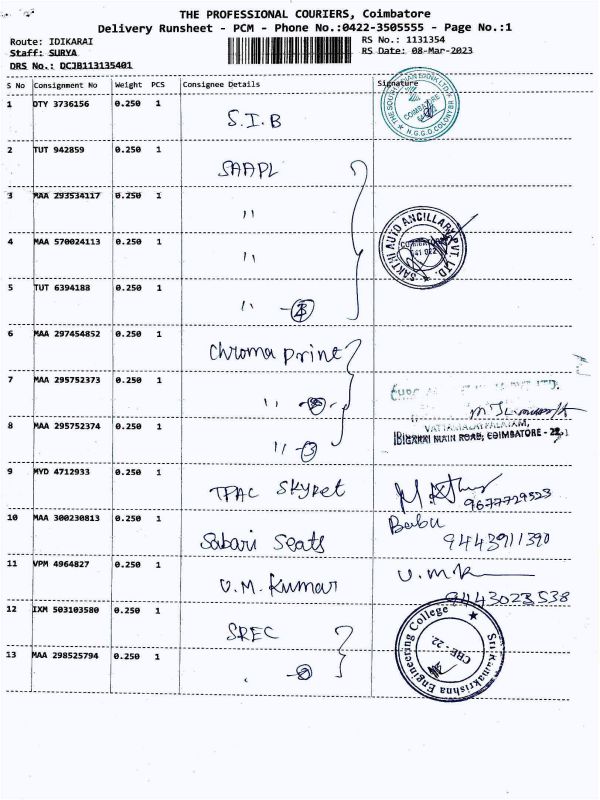 THE PROFESSIONAL COURIERS, Coimbatore
Delivery Runsheet - PCM - Phone No.:0422-3505555 - Page No.:1
Route: IDIKARAI
RS No.: 1131354
Staff: SURYA
RS Date: 08-Mar-2023
DRS No.: DCJB113135401
S No Consignment No Weight PCS Consignee Details Signature
1 DTY 3736156 0.250 1 S.I.B
COIMBATORE
N.G.G.O.COLONY BRANCH
2 TUT 942859 0.250 1 SAAPL
3 MAA 293534117 0.250 1 ''
SAKTHI AUTO ANCILLARY PVT. LTD.
COIMBATORE
641 022
4 MAA 570024113 0.250 1 ''
5 TUT 6394188 0.250 1 ''
6 MAA 297454852 0.250 1 Chroma print
7 MAA 295752373 0.250 1 ''
8 MAA 295752374 0.250 1 '' - 3
VATTAMALAIPALAYAM,
IDIGARAI MAIN ROAD, COIMBATORE - 22
9 MYD 4712933 0.250 1 TPAC Skypet
9677729523
10 MAA 300230813 0.250 1 Sabari Seats Babu
9443911390
11 VPM 4964827 0.250 1 V.M. Kumar V.mk
9443023538
12 IXM 503103580 0.250 1 SREC
Sri Ramakrishna Engineering College
CBE - 22.
13 MAA 298525794 0.250 1